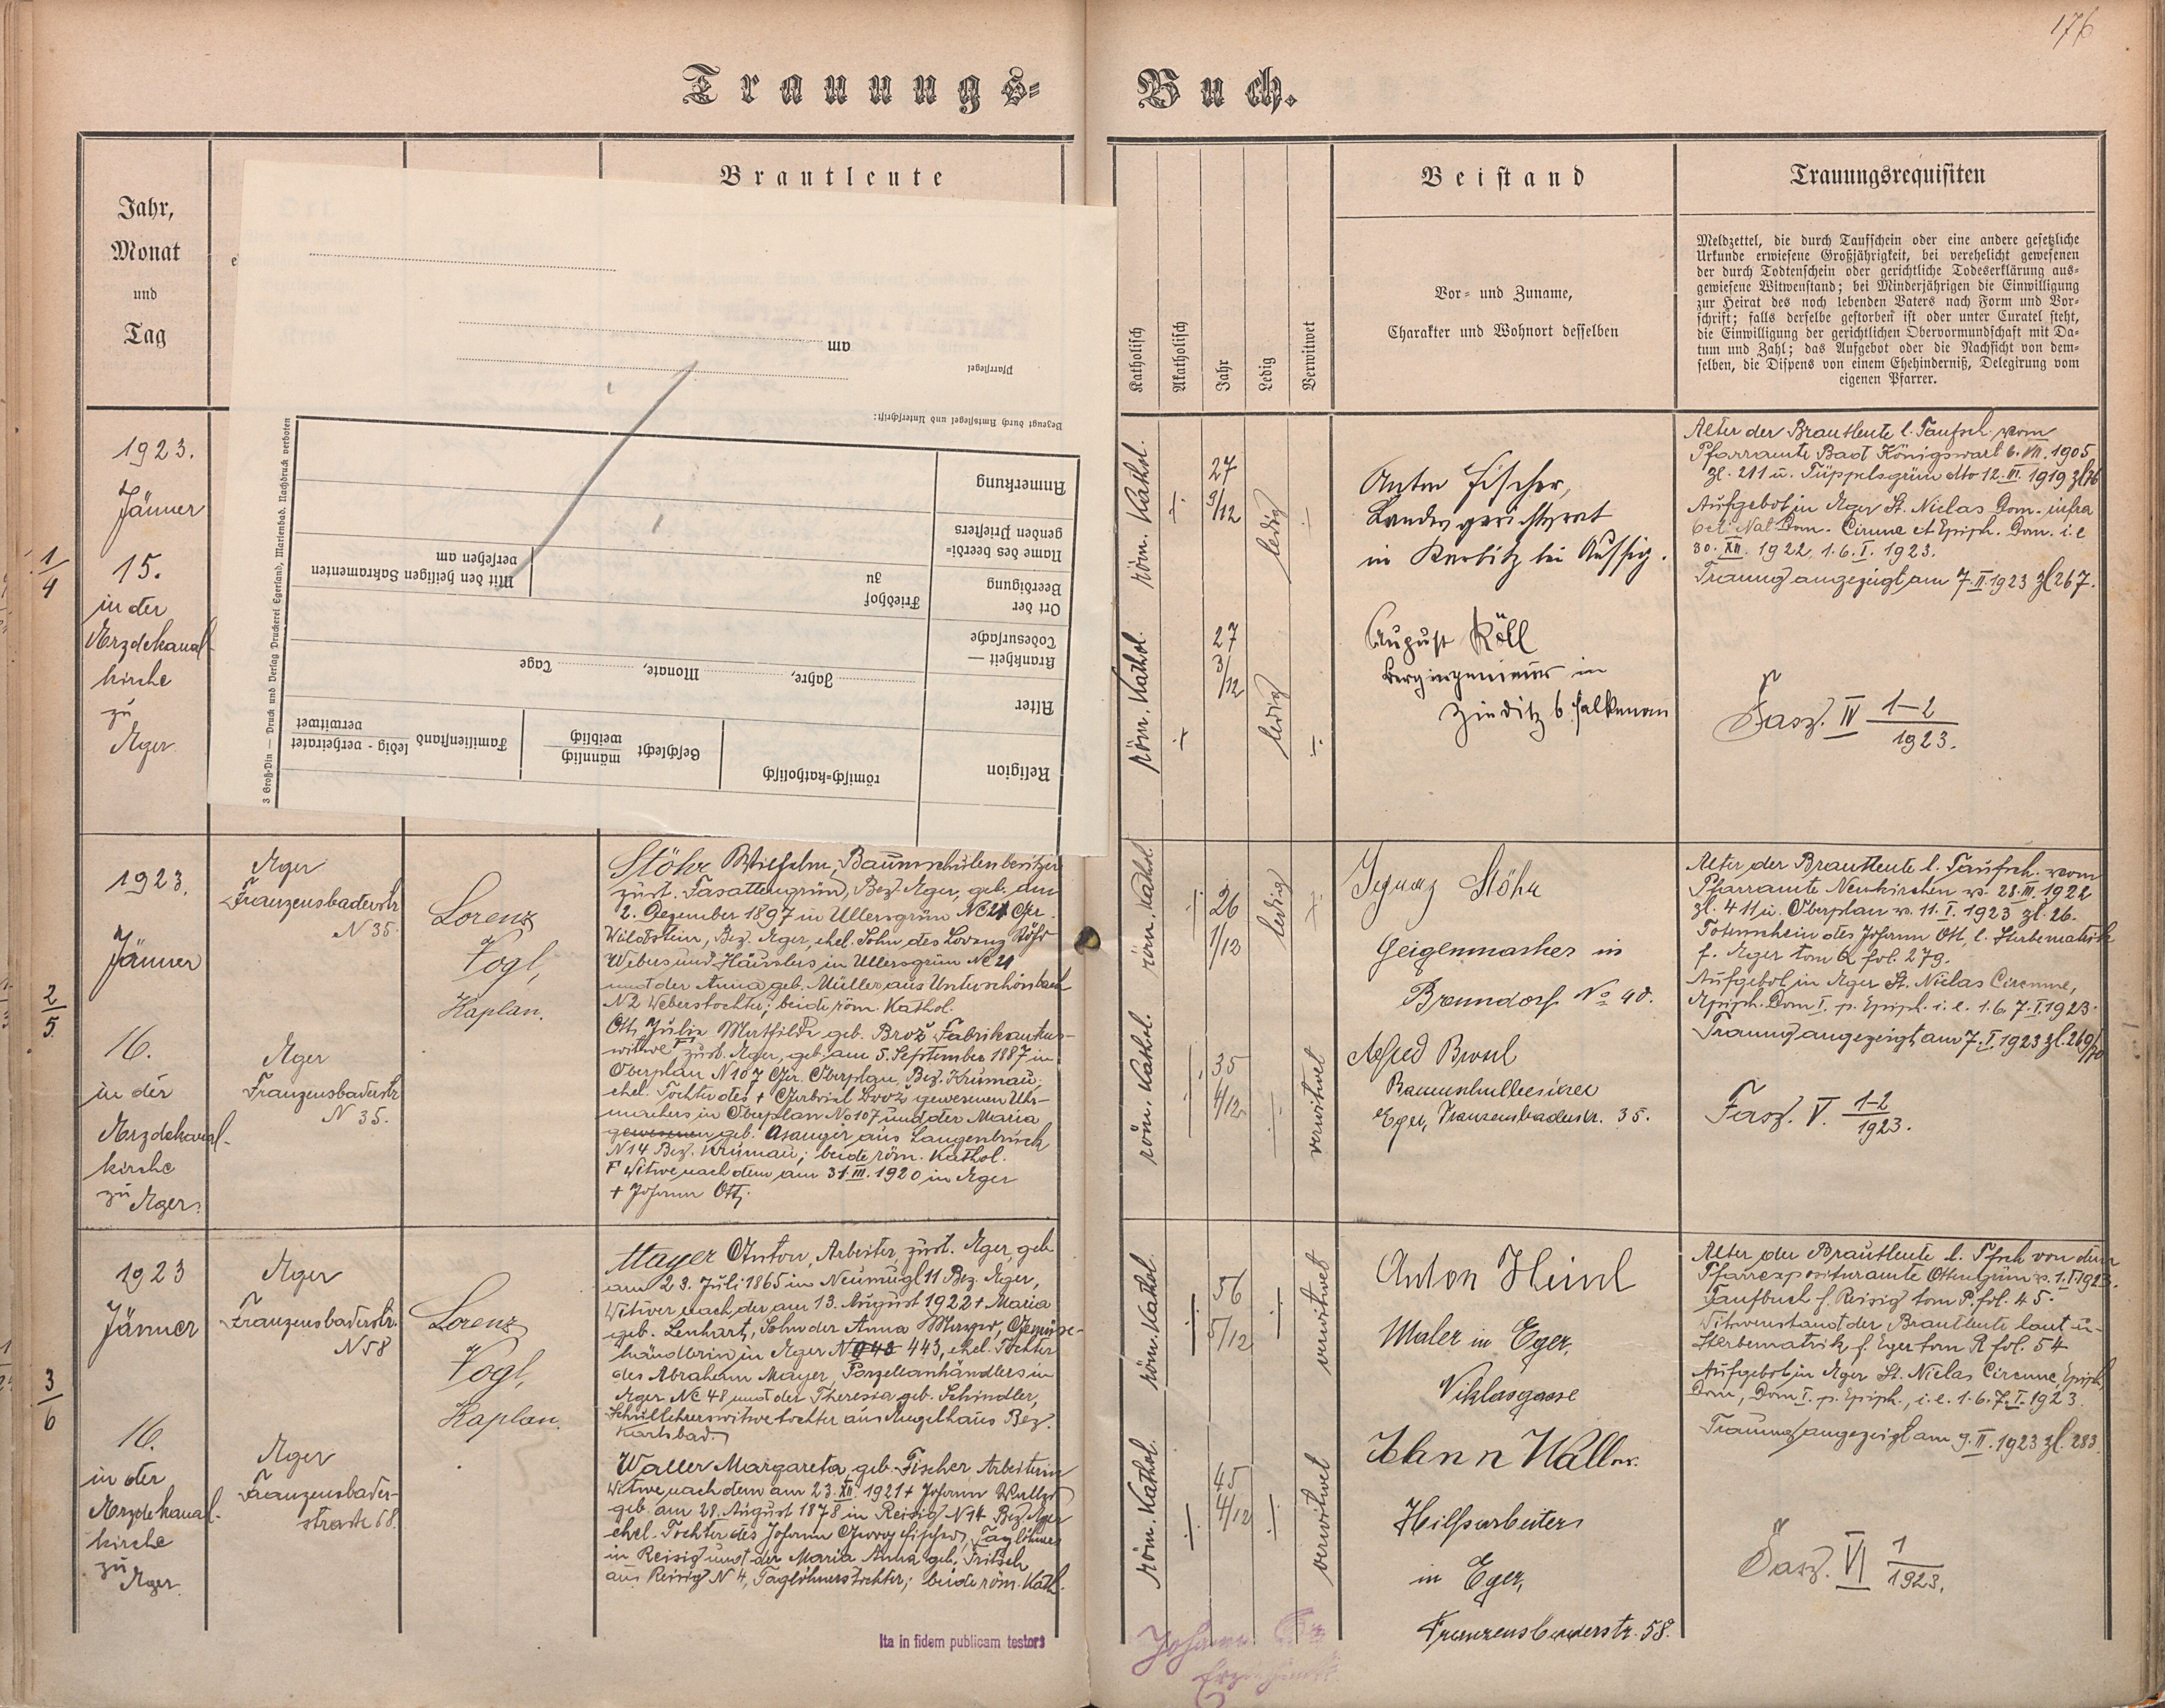 176
Trauungs-
Buch.
Jahr,
Monat
und
Tag
Brautleute
Katholisch
Akatholisch
Jahr
Ledig
Verwitwet
Beistand
Vor- und Zuname,
Charakter und Wohnort desselben
Trauungsrequisiten
Meldzettel, die durch Taufschein oder eine andere gesetzliche
Urkunde erwiesene Großjährigkeit, bei verehelicht gewesenen
der durch Todtenschein oder gerichtliche Todeserklärung aus-
gewiesene Witwenstand; bei Minderjährigen die Einwilligung
zur Heirat des noch lebenden Vaters nach Form und Vor-
schrift; falls derselbe gestorben ist oder unter Curatel steht,
die Einwilligung der gerichtlichen Obervormundschaft mit Da-
tum und Zahl; das Aufgebot oder die Nachsicht von dem-
selben, die Dispens von einem Ehehinderniß, Delegirung vom
eigenen Pfarrer.
Religion
römisch-katholisch
Geschlecht
männlich
weiblich
Familienstand
ledig - verheiratet
verwitwet
Alter
Jahre,
Monate,
Tage
Krankheit —
Todesursache
Ort der
Beerdigung
Friedhof
zu
Mit den heiligen Sakramenten
versehen am
Name des beerdi-
genden Priesters
Anmerkung
Bezeugt durch Amtssiegel und Unterschrift:
Pfarrsiegel
am
3 Groß-Din — Druck und Verlag Druckerei Egerland, Marienbad. Nachdruck verboten
1/4
1923.
Jänner
15.
in der
Erzdekanal-
kirche
zu
Eger
röm. Kathol.
27
9/12
ledig
röm. Kathol.
27
3/12
ledig
Anton Fischer,
Landesgerichtsrat
in Karbitz bei Aussig.
August Köll
Bergingenieur in
Zieditz b. Falkenau
Alter der Brautleute l. Taufsch. vom
Pfarramte Bad Königswart 6. VII. 1905
Zl. 211 u. Tüppelsgrün dto 12. III. 1919 Zl.
Aufgebot in Eger St. Niclas Dom. infra
Oct. Nat. Dom. Circumc. et Epiph. Dom. i. e
30. XII. 1922, 1. 6. I. 1923.
Trauung angezeigt am 7. II. 1923 Zl 267.
Fasz. IV 1-2/1923.
2/5
1923.
Jänner
16.
in der
Erzdekanal-
kirche
zu Eger
Eger
Franzensbaderstr
N 35.
Eger
Franzensbaderstr
N 35.
Lorenz
Vogl,
Kaplan.
Stöhr Wilhelm, Baumschulenbesitzer
zust. Fasattengrün, Bez. Eger, geb. am
2. Dezember 1897 in Ullersgrün NC 21 Ger.
Wildstein, Bez. Eger, ehel. Sohn des Lorenz Stöhr
Webers und Häuslers in Ullersgrün NC 21
und der Anna geb. Müller aus Unterschönbach
N 2 Weberstochter; beide röm. Kathol.
Ott, Julia Mathilde geb. Brož Fabrikantens-
witwe zust. Eger, geb. am 5. September 1887 in
Oberplan N 107 Ger. Oberplan, Bez. Krumau,
ehel. Tochter des + Gabriel Brož gewesenen Uhr-
machers in Oberplan No 107 und der Maria
gewesenen geb. Asanger aus Langenbruck
N 14 Bez. Krumau; beide röm. Kathol.
F Witwe nach dem am 31. III. 1920 in Eger
+ Johann Ott.
röm. Kathol.
26
1/12
ledig
röm. Kathol.
35
4/12
verwitwet
Ignaz Stöhr
Geigenmacher in
Brenndorf No 40.
Alfred
Baumschulbesitzer
Eger, Franzensbaderstr. 35.
Alter der Brautleute l. Taufsch. vom
Pfarramte Neukirchen v. 28. III. 1922
Zl. 411 u. Oberplan v. 11. I. 1923 Zl. 26.
Totenschein des Johann Ott, l. Sterbematrik
f. Eger tom Q fol. 279.
Aufgebot in Eger St. Niclas Circumc,
Epiph. Dom I. p. Epiph. i. e. 1. 6. 7. I. 1923.
Trauung angezeigt am 7. I. 1923 Zl. 269/70
Fasz. V. 1-2/1923.
3/6
1923
Jänner
16.
in der
Erzdekanal-
kirche
zu
Eger
Eger
Franzensbaderstr.
N 58
Eger
Franzensbader-
strasse 58.
Lorenz
Vogl,
Kaplan.
Mayer Anton, Arbeiter, zust. Eger, geb
am 23. Juli 1865 in Neumugl 11 Bez. Eger,
Witwer nach der am 13. August 1922 + Maria
geb. Lenhart, Sohn der Anna Mayer, Gemüse-
händlerin in Eger N 443, ehel. Tochter
des Abraham Mayer, Porzellanhändlers in
Eger NC 48 und der Theresia geb. Schindler,
Schullehrerswitwetochter aus Engelhaus Bez.
Karlsbad.
Waller Margareta, geb. Fischer, Arbeiterin
Witwe nach dem am 23. XII. 1921 + Johann Waller
geb. am 28. August 1878 in Reisig N 14 Bez. Eger
ehel. Tochter des Johann Georg Fischer, Taglöhner
in Reisig und der Maria Anna geb. Fritsch
aus Reisig N 4, Taglöhnerstochter; beide röm. Kath.
röm. Kathol.
56
5/12
verwitwet
röm. Kathol.
45
4/12
verwitwet
Anton Heinl
Maler in Eger,
Niklasgasse
Johann Waller
Hilfsarbeiter
in Eger,
Franzensbaderstr. 58.
Alter der Brautleute l. Tfsch von dem
Pfarrexposituramte Ottengrün v. 1. I. 1923.
Taufbuch f. Reisig tom P. fol. 45.
Witwenstand der Brautleute laut u-
Sterbematrik f. Eger tom R fol. 54
Aufgebot in Eger St. Niclas Circumc, Epiph,
Dom, Dom I. p. Epiph., i. e. 1. 6. 7. I. 1923.
Trauung angezeigt am 9. II. 1923 Zl. 283.
Fasz. VI 1/1923.
Ita in fidem publicam testors
Johann